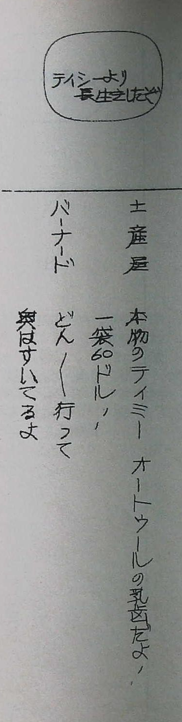 テイシーより
長生きしたぞ
土産屋 本物のティミー オートゥールの乳歯だよ!
一袋60ドル!!
バーナード どん/\行って
奥はすいてるよ